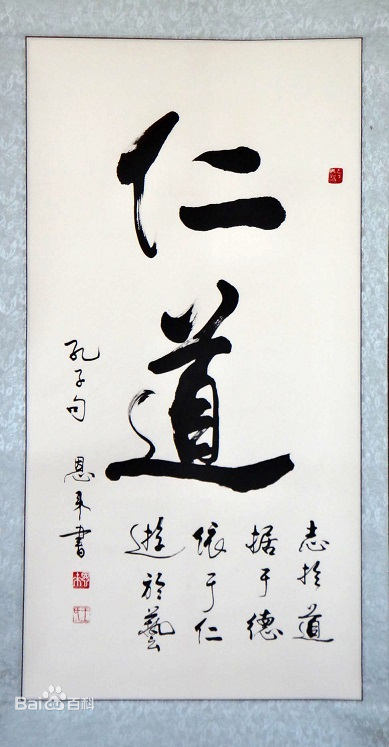 仁道
志於道
据于德
依于仁
遊於藝
孔子句
恩来書
Bai百科